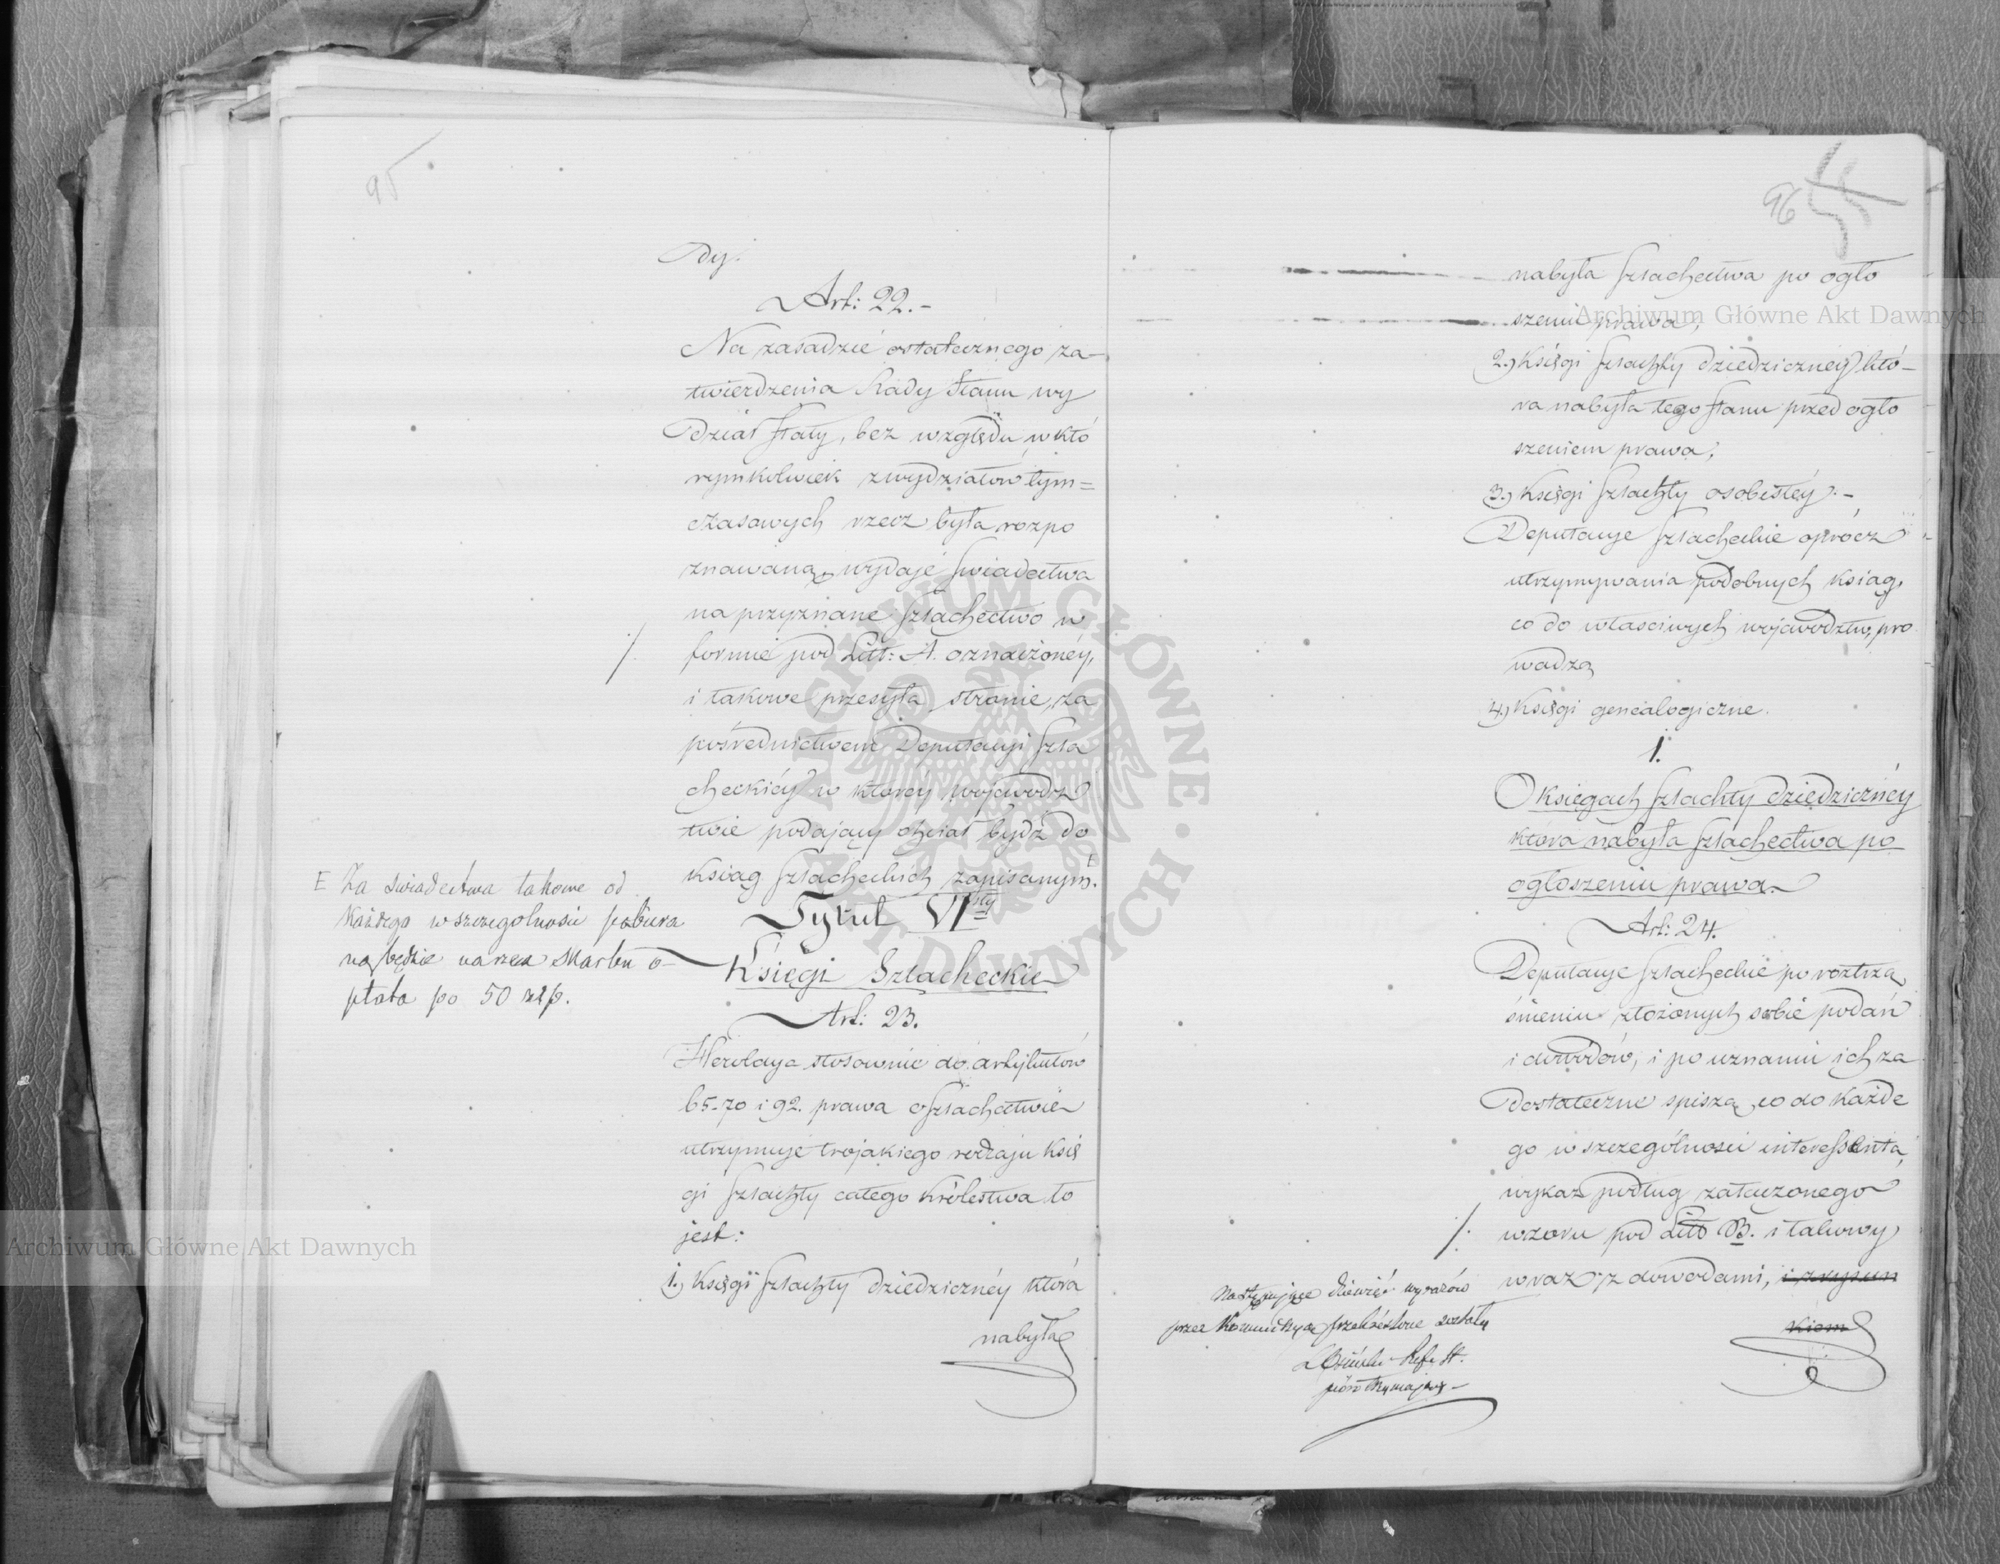 95
dy.
Art: 22.-
Na zasadzie ostatecznego za-
twierdzenia Rady Stanu wy
dział stały, bez względu w któ
rymkolwiek z wydziałów tym=
czasowych rzecz była rozpo
znawaną, wydaje świadectwa
na przyznane szlachectwo w
formie pod Litt: A. oznaczonéy,
i takowe przesyła stronie, za
pośrednictwem Deputacyi szla
checkiéy w któréy wojewódz
twie podający chciał bydź do
ksiąg szlacheckich zapisanym. E
E Za świadectwa takowe od
każdego w szczególnosci pobiera
na będzie na rzecz skarbu o-
płata po 50 złp.
Tytuł VI sty
Księgi Szlacheckie
Art: 23.
Heroldya stosownie do artykułów
65-70 i 92. prawa o szlachectwie
utrzymuje trojakiego rodzaju Księ
gi szlachty całego Królestwa to
jest:
1.) Księgi szlachty dziedzicznéy która
nabyła
96
nabyła szlachectwa po ogło
szeniu prawa;
2.) Księgi szlachty dziedzicznéy któ-
ra nabyła tego stanu przed ogło
szeniem prawa;
3.) Księgi szlachty osobistéy.-
Deputacye szlacheckie oprócz
utrzymywania podobnych ksiąg,
co do właściwych województw, pro
wadzą
4.) Księgi genealogiczne.
1.
O księgach szlachty dziedzicznéy
która nabyła szlachectwa po
ogłoszeniu prawa.
Art: 24.
Deputacye szlacheckie po roztrzą
śnieniu złożonych sobie podań
i dowodów, i po uznaniu ich za
dostateczne spiszą, co do każde
go w szczególnosci interessenta,
wykaz podług załączonego
wzoru pod Litt B. i takowy
wraz z dowodami, i z rysun
kiem
Następujące dziewięć wyrazów
przez Kommissyą przekreślone zostały
Ref. St.
pióro trzymający
Archiwum Główne Akt Dawnych
Archiwum Główne Akt Dawnych
ARCHIWUM GŁÓWNE · AKT DAWNYCH ·